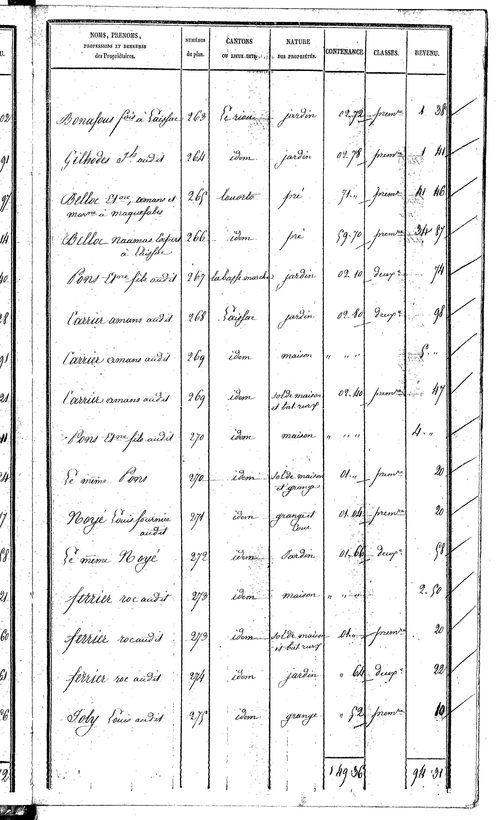 NOMS, PRENOMS, PROFESSIONS ET DEMEURES des Propriétaires. NUMÉROS du plan. CANTONS OU LIEUX DITS NATURE DES PROPRIÉTÉS. CONTENANCE. CLASSES. REVENU.
Bonafous fils à Laissac 263 jardin 02.72 premre 1 38
Gilhodes audit 264 idem jardin 02.78 premre 1 41
Belloc Etne, amans et 265 pré 71 „ premre 41 46
à maquefabes
Belloc naamas Expert 266 idem pré 59.70 premre 34 87
à Laissac
Pons Etne fils audit 267 labasse marche jardin 02.10 deuxe 74
Carrier amans audit 268 Laissac jardin 02.80 deuxe 98
Carrier amans audit 269 idem maison „ „ „ 5 „
Carrier amans audit 269 idem sol de maison 02.40 premre 47
et bat. rural
Pons Etne fils audit 270 idem maison „ „ „ 4 „
Le même Pons 270 idem sol de maison 01 „ premre 20
et grange
Noyé Louis fournier 271 idem grange et 01.04 premre 20
audit cour
Le même Noyé 272 idem Jardin 01.66 deuxe 58
ferrier roc audit 273 idem maison „ „ „ 2.50
ferrier roc audit 273 idem sol de maison 01 „ premre 20
et bat. rural
ferrier roc audit 274 idem jardin „ 64 deuxe 22
Joly Louis audit 275 idem grange „ 52 premre 10
1 49.36 94.31